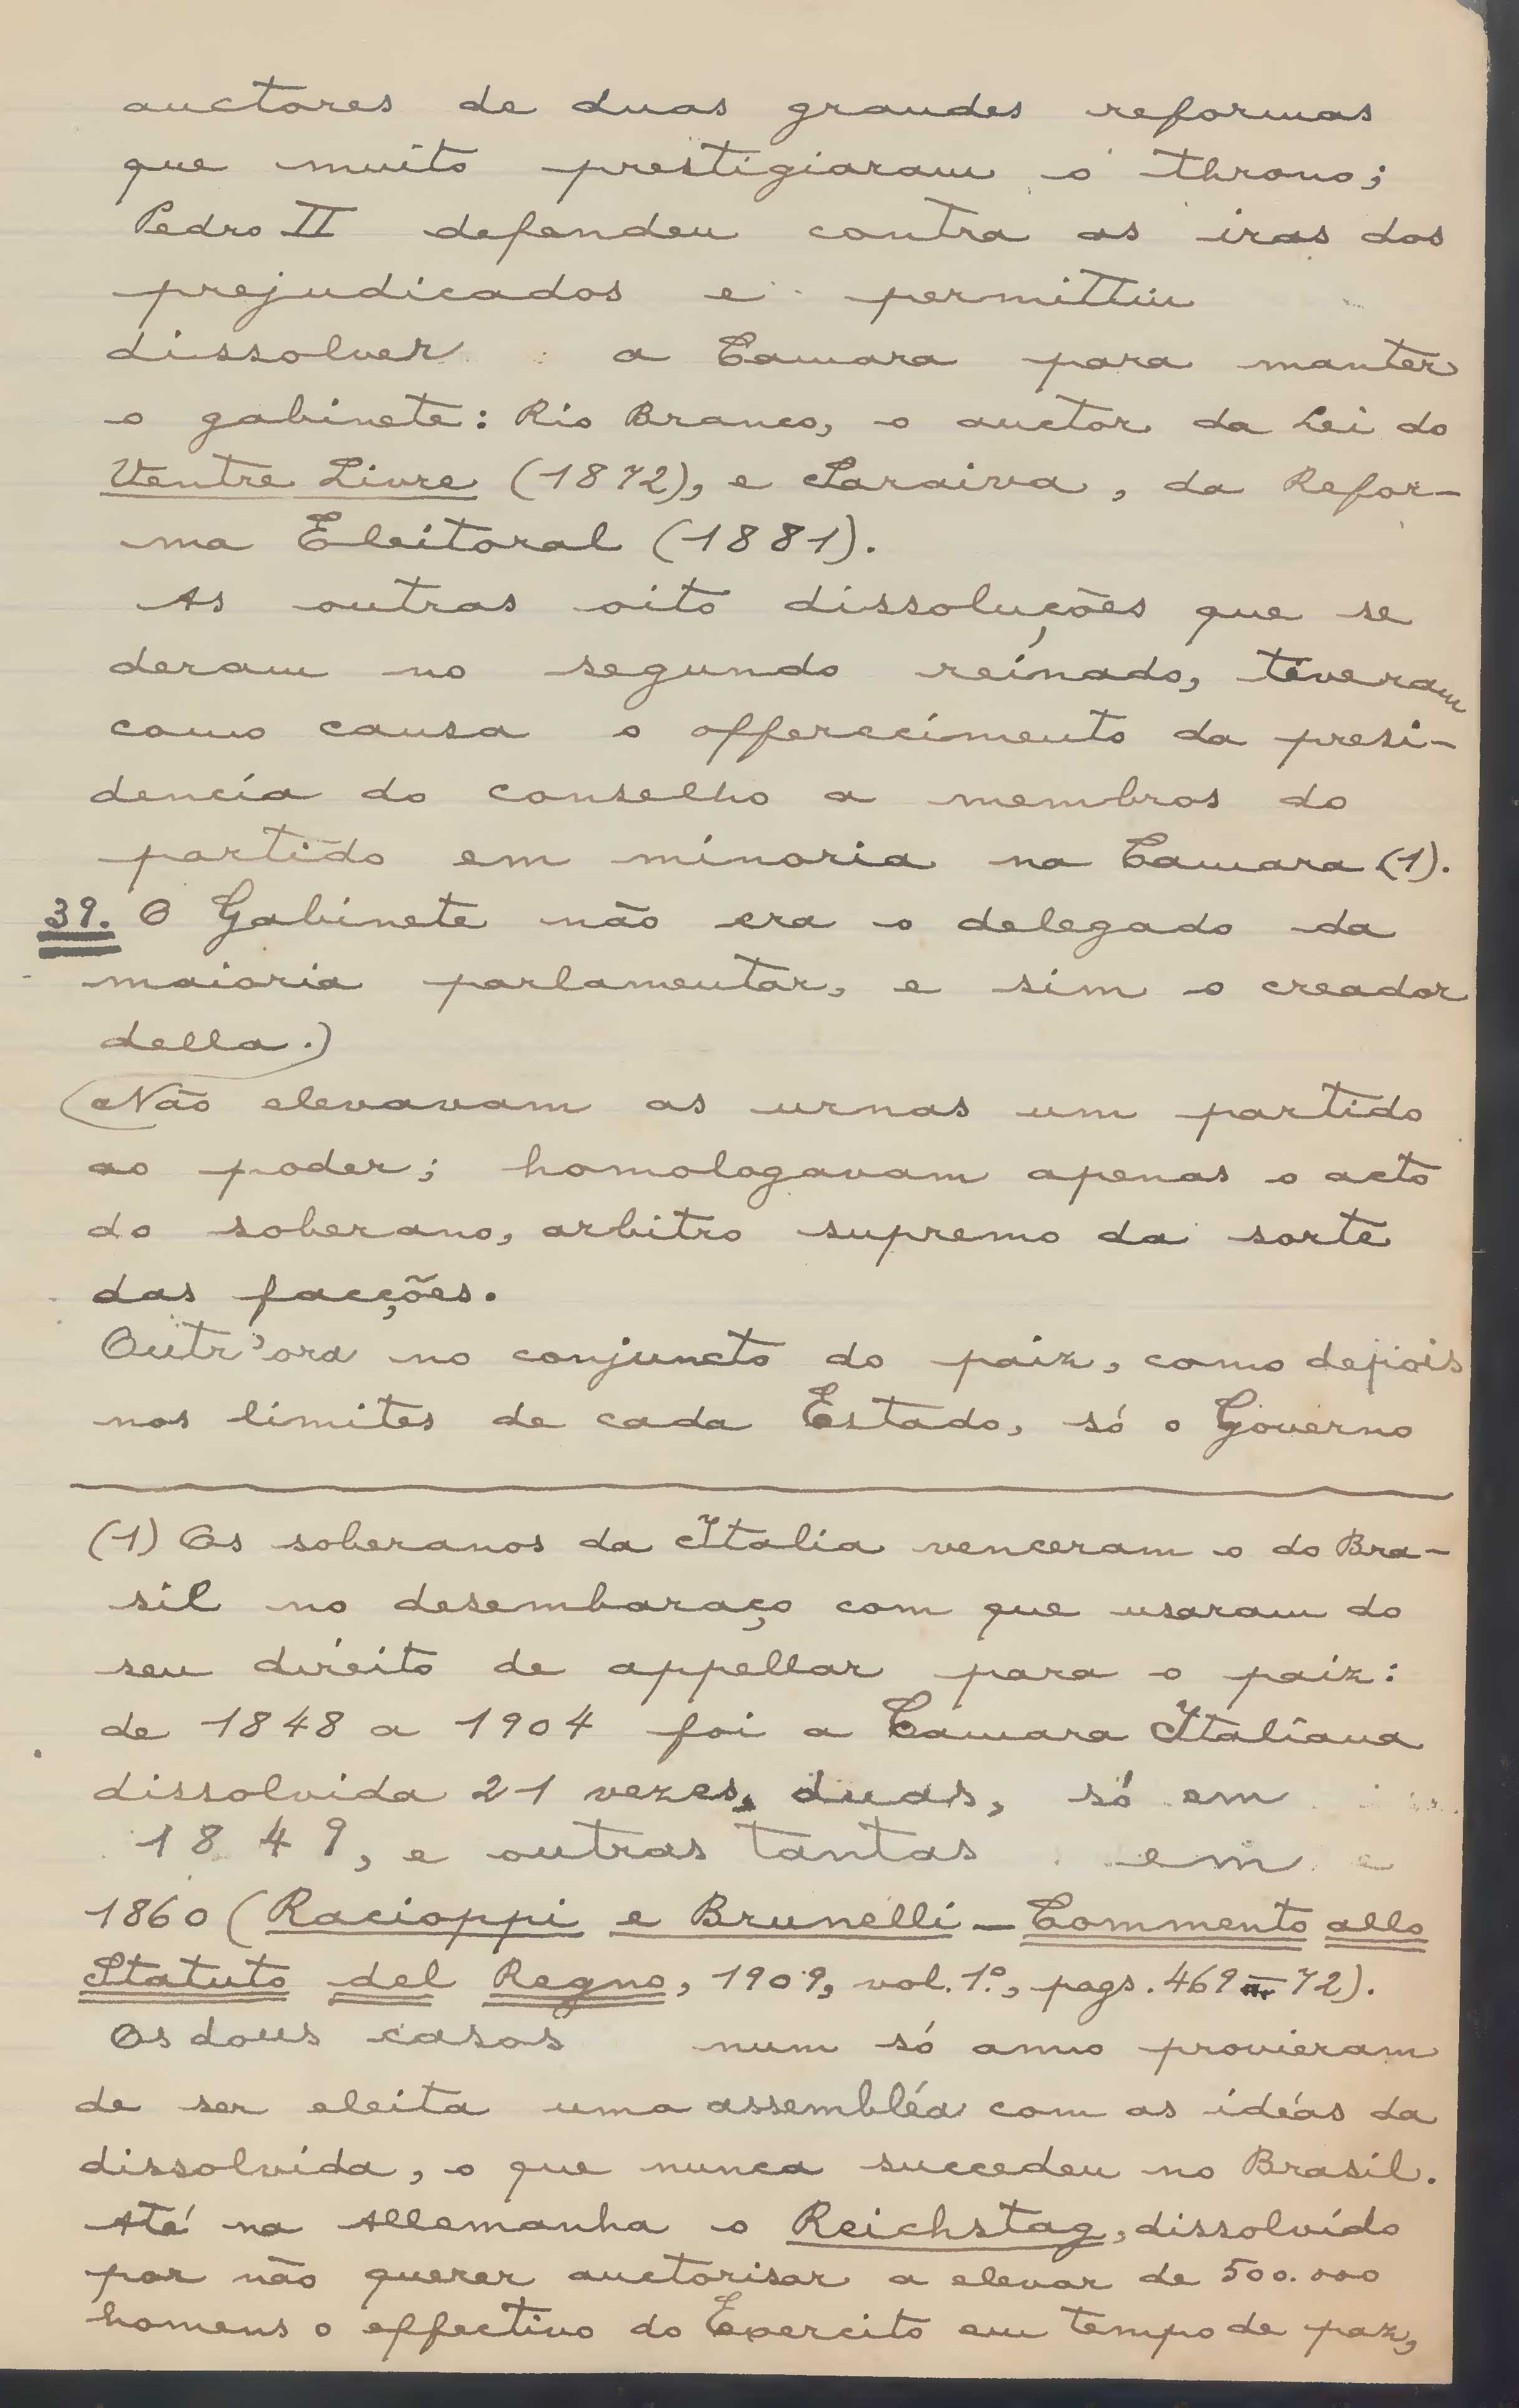 auctores de duas grandes reformas
que muito prestigiaram o throno;
Pedro II defendeu contra as iras dos
prejudicados e permittiu
dissolver a Camara para manter
o gabinete: Rio Branco, o auctor da Lei do
Ventre Livre (1872), e Saraiva, da Refor-
ma Eleitoral (1881).
As outras oito dissoluções que se
deram no segundo reinado, tiveram
como causa o offerecimento da presi-
dencia do conselho a membros do
partido em minoria na Camara (1).
39. O Gabinete não era o delegado da
maioria parlamentar, e sim o creador
della.)
(Não elevavam as urnas um partido
ao poder; homologavam apenas o acto
do soberano, arbitro supremo da sorte
das facções.
Outr'ora no conjuncto do paiz, como depois
nos limites de cada Estado, só o Governo
(1) Os soberanos da Italia venceram o do Bra-
sil no desembaraço com que usaram do
seu direito de appellar para o paiz:
de 1848 a 1904 foi a Camara Italiana
dissolvida 21 vezes, duas, só em
1849, e outras tantas em
1860 (Racioppi e Brunelli - Commento allo
Statuto del Regno, 1909, vol. 1º, pags. 469-72).
Os dous casos num só anno provieram
de ser eleita uma assembléa com as idéas da
dissolvida, o que nunca succedeu no Brasil.
Até na Allemanha o Reichstag, dissolvido
por não querer auctorisar a elevar de 500.000
homens o effectivo do Exercito em tempo de paz,